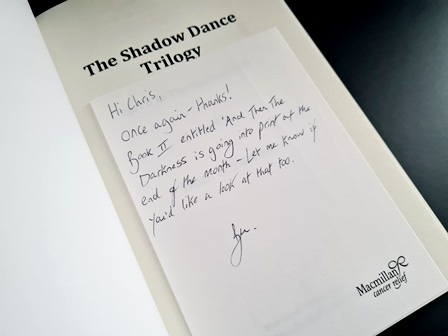 The Shadow Dance
Trilogy
Hi Chris,
Once again - thanks!
Book II entitled 'And Then The
Darkness is going into print at the
end of the month - Let me know if
you'd like a look at that too.
Macmillan
cancer relief